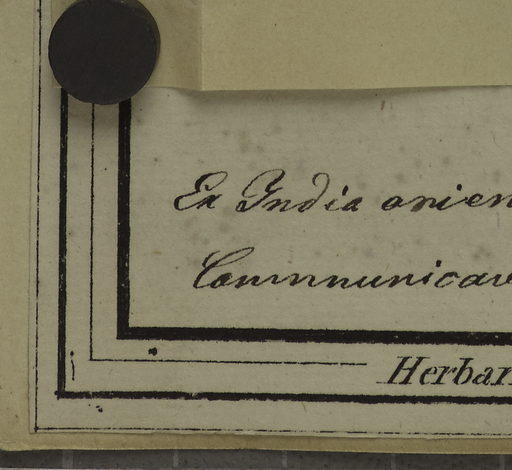 Ex India orien
Communicav
Herbar